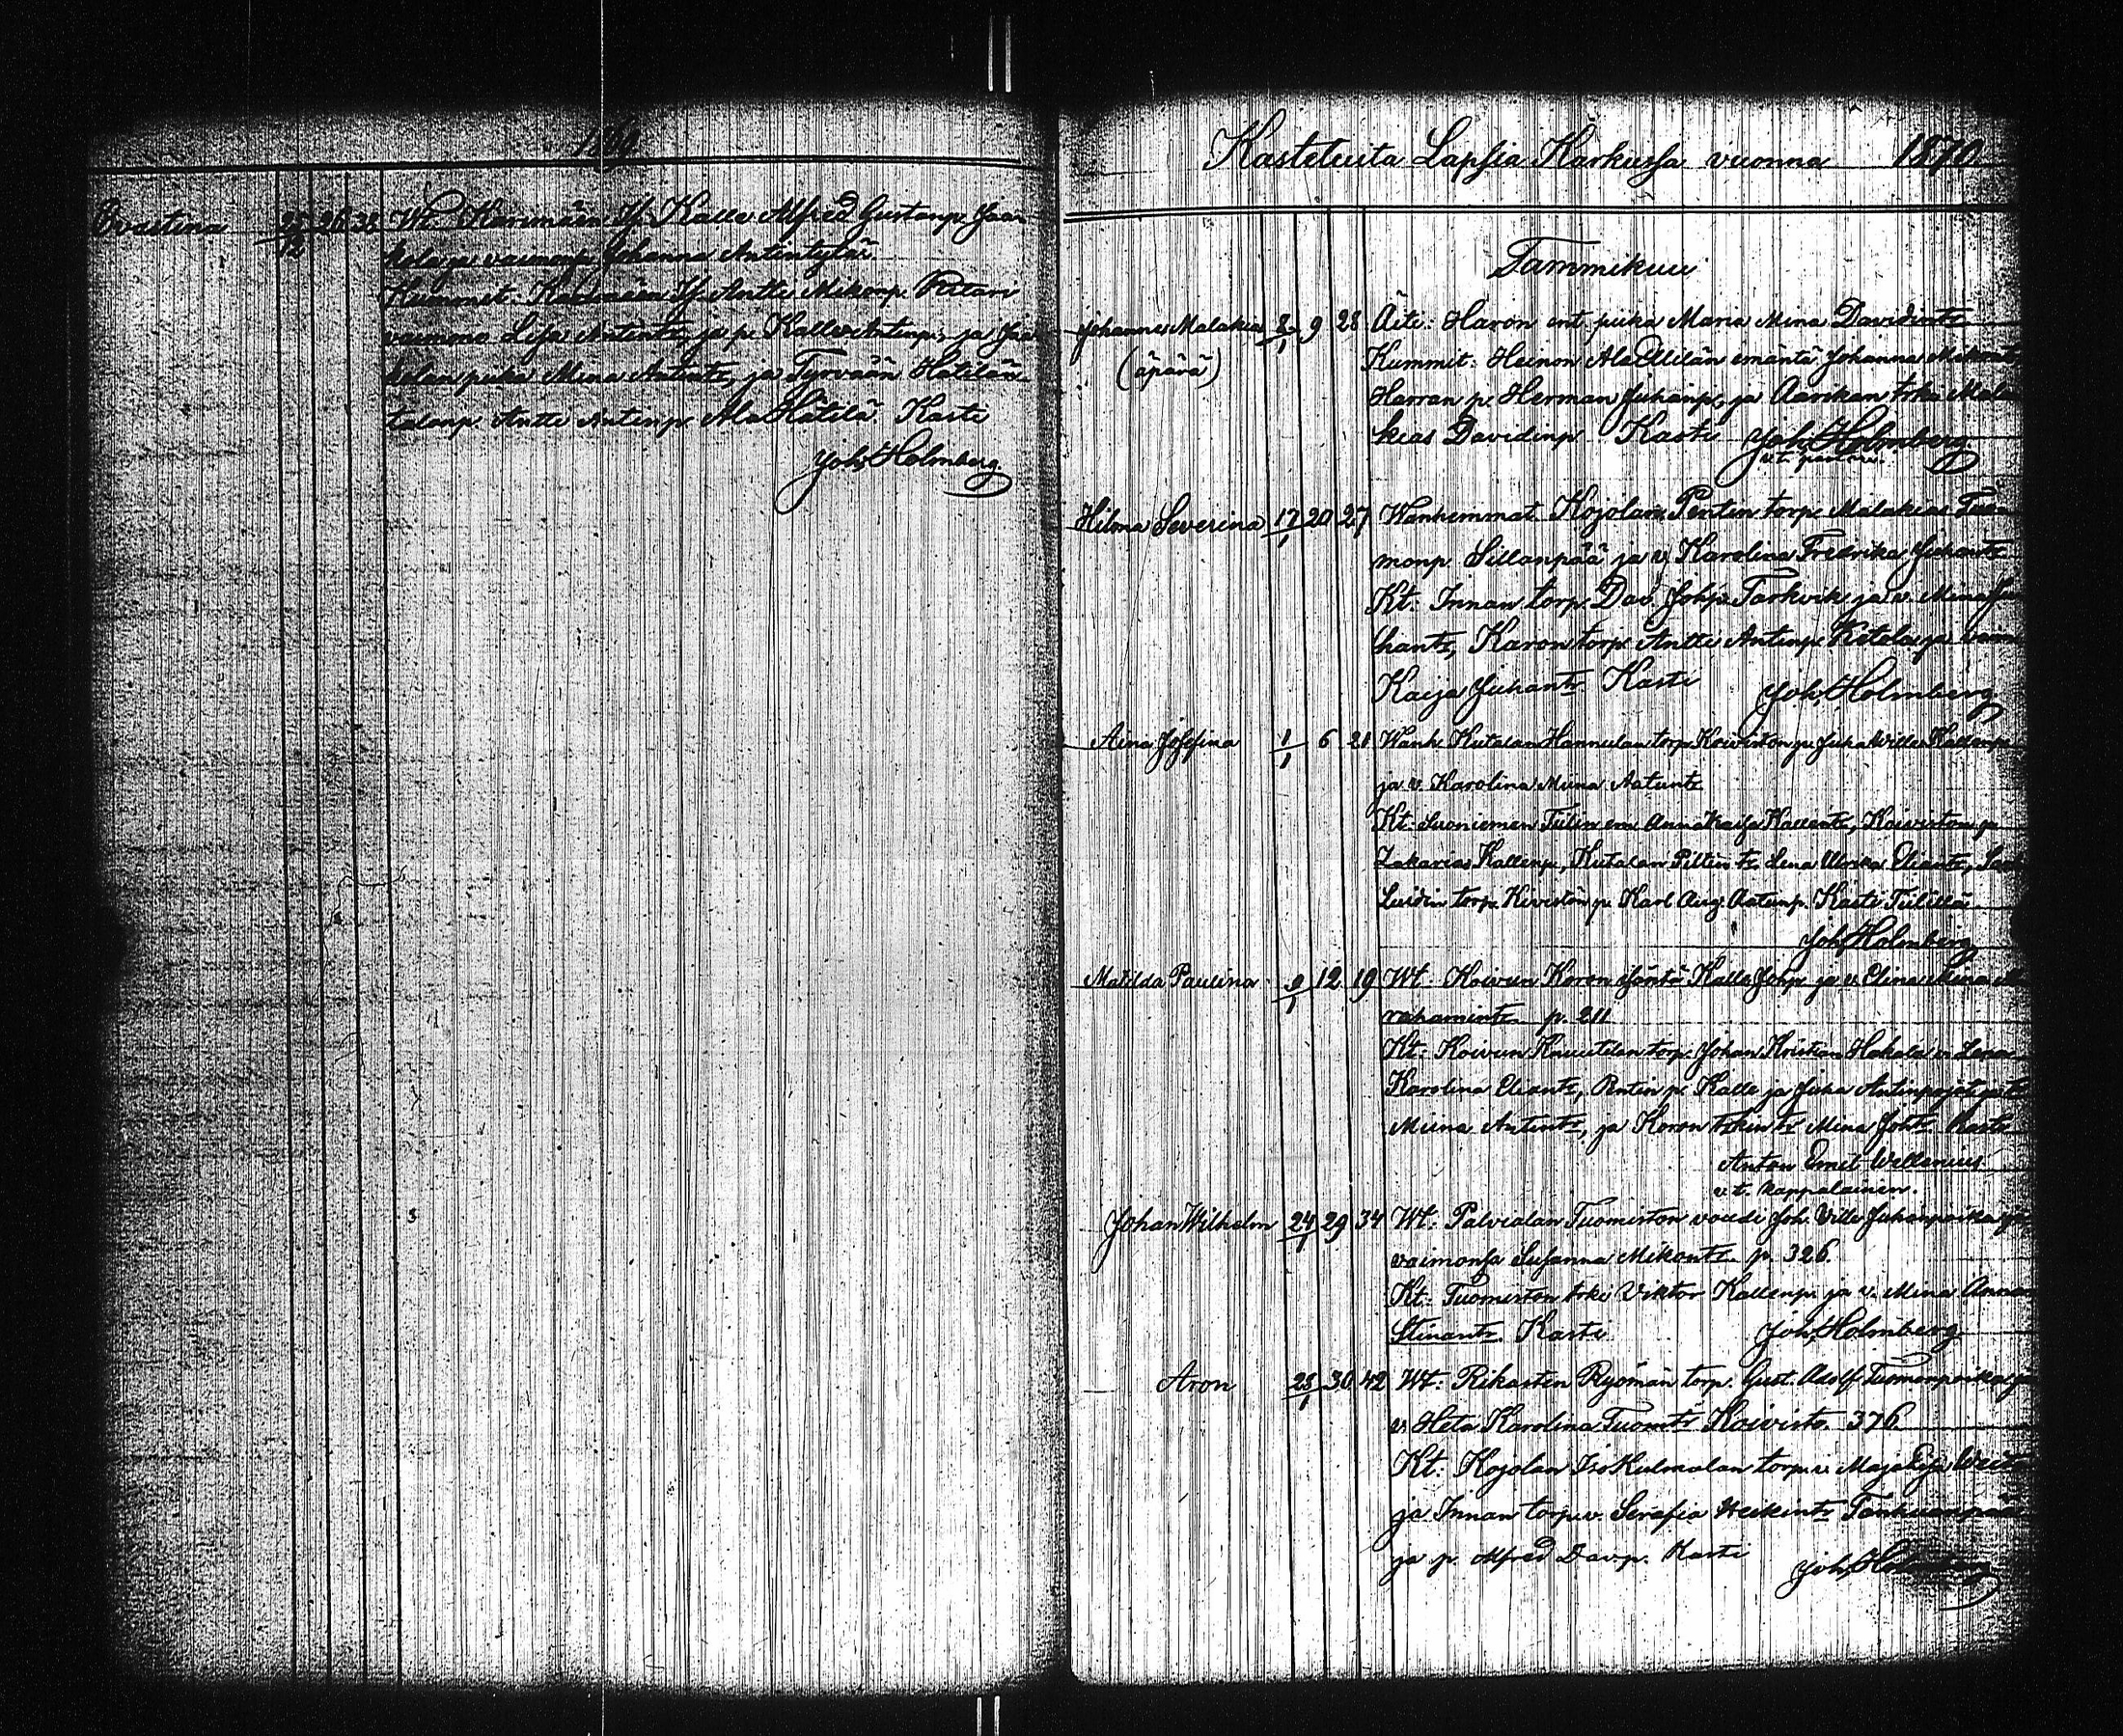 1869
Evastina 25/12 26 38 Wt. Karimäen If. Kalle Alfred Gustanp. Jaa-
kola ja vaimonsa Johanna Antintytär
Kummit. Karimäen If. Antte Mikonp. Ritari
vaimons Lisa Antintr, ja p. Kalle Antinp., ja Jaa-
kolan piika Miina Antintr, ja Tyrvään Hätilän
talonp. Antte Antinp. AlaHätilä. Kasti
Joh. Holmberg.
Kasteluita Lapsia Karkussa vuonna 1870.
Tammikuu
Johannes Malakia 8/1 9 28 Äiti: Haron ent. piika Maria Mina Davidintr
(äpärä) Kummit: Heinon AlaUlilän emäntä Johanna Mikont
Harran p. Herman Juhanp., ja Aarikan trki Mala-
kias Davidinp. Kasti Joh. Holmberg
v.t. pastori.
Hilma Severina 17/1 20 27 Wanhemmat Kojolan Pentin torp. Malakias Tuo-
monp. Sillanpää ja v. Karolina Fredrika Juhantr
Kt: Innan torp. Dav. Johp. Tarkvik ja v. Mina Ju-
hantr, Karon torp. Antte Antinp. Ketola ja vaim
Kaija Juhantr. Kasti Joh. Holmberg
Aina Josefina 1/1 6 21 Wanh. Kutalan Hannulan torp. Koiviston p. Juha Wille Kallenp.
ja v. Karolina Miina Aatuntr
Kt. Suoniemen Tulin em. Annakaisa Kallentr, Koiviston p.
Zakarias Kallenp., Kutalan Piltin tr. Lena Ulrika Eliantr,
Luidin torp. Kivistön p. Karl Aug. Aatunp. Kasti Tiilillä
Joh. Holmberg
Matilda Paulina 9/1 12 19 Wt. Koivun Koron isäntä Kalle Jonp. ja v. Elina Miina A
rahamintr. p. 211
Kt: Koivun Kauttilan torp. Johan Kristian Hakala v. Lena
Karolina Eliantr, Rutin p. Kalle ja Juha Antinpojat ja tr
Miina Antintr, ja Koron trkin tr Mina Johtr. Kasti
Anton Emil Wellenius
v.t. kappalainen.
Johan Wilhelm 24/1 29 34 Wt: Palvialan Tuomiston voudi Joh. Ville Juhanpoika ja
vaimonsa Susanna Mikontr. p. 326.
Kt: Tuomiston trki Viktor Kallenp. ja v. Mina Annan
Stinantr. Kasti Joh. Holmberg.
Aron 28/1 30 42 Wt: Rikasten Ryömän torp. Gust. Adolf Tuomonpoika ja
v. Heta Karolina Tuomtr Koivisto. 376.
Kt: Kojolan IsoKulmalan torp. v. Maja Eija
ja Innan torp. v. Serafia Heikintr Tanhuanpää
ja p. Alfred Davp. Kasti Joh. Holmberg